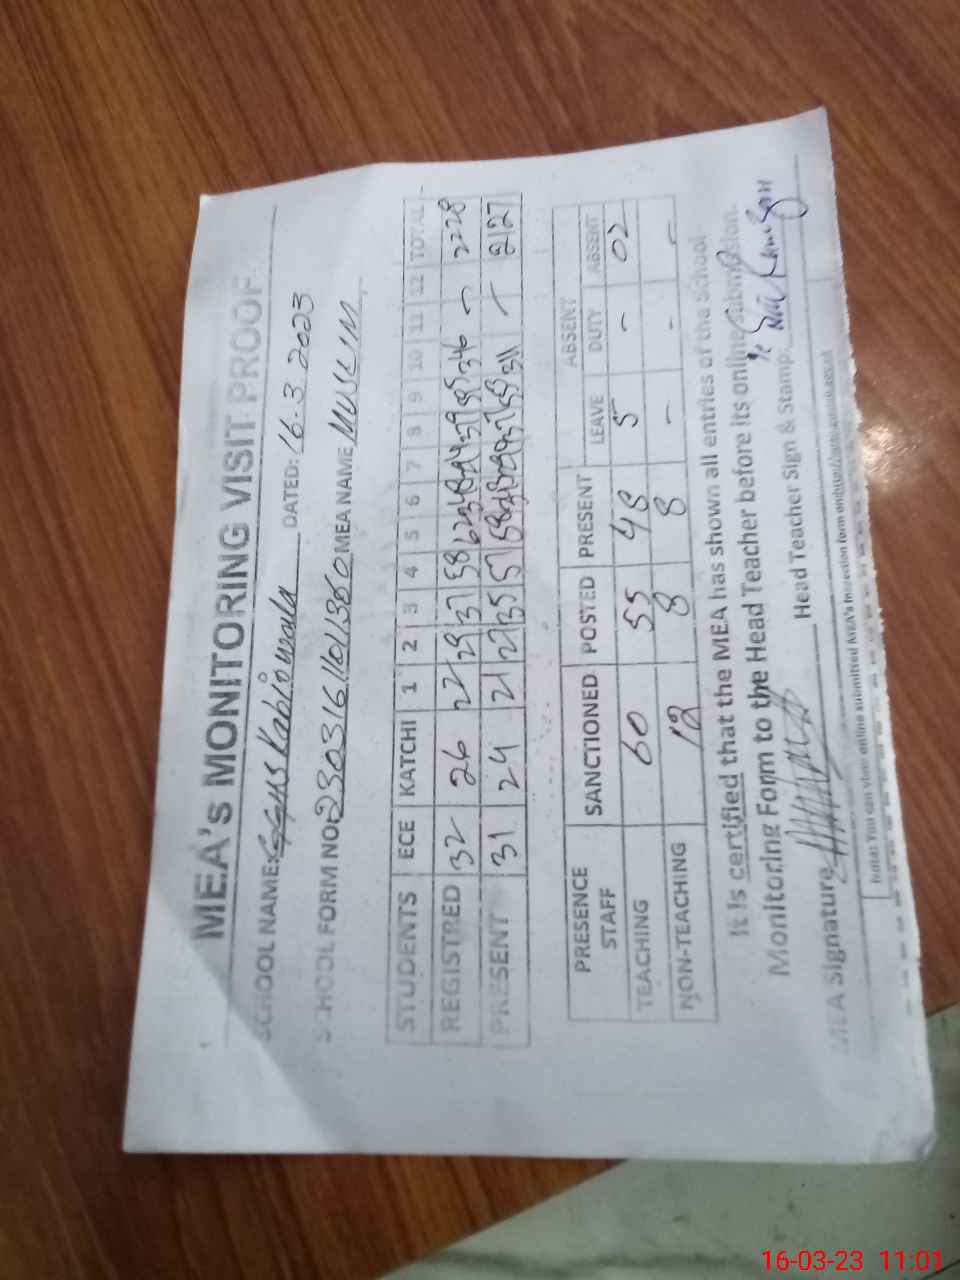 MEA's MONITORING VISIT PROOF
SCHOOL NAME: Kabirwala DATED: 16.3.2023
SCHOOL FORM NO. MEA NAME MUSLIM
STUDENTS ECE KATCHI 1 2 3 4 5 6 7 8 9 10 11 12 TOTAL
REGISTRED 32 26 22 29 37 58 62 346 - 2228
PRESENT 31 24 21 27 35 57 58 311 - 2127
PRESENCE STAFF SANCTIONED POSTED PRESENT ABSENT
LEAVE DUTY ABSENT
TEACHING 60 55 48 5 - 02
NON-TEACHING 12 8 8 - - -
It is certified that the MEA has shown all entries of the School
Monitoring Form to the Head Teacher before its online Submission.
MEA Signature Head Teacher Sign & Stamp:
Note: You can view online submitted MEA's inspection form on
16-03-23 11:01